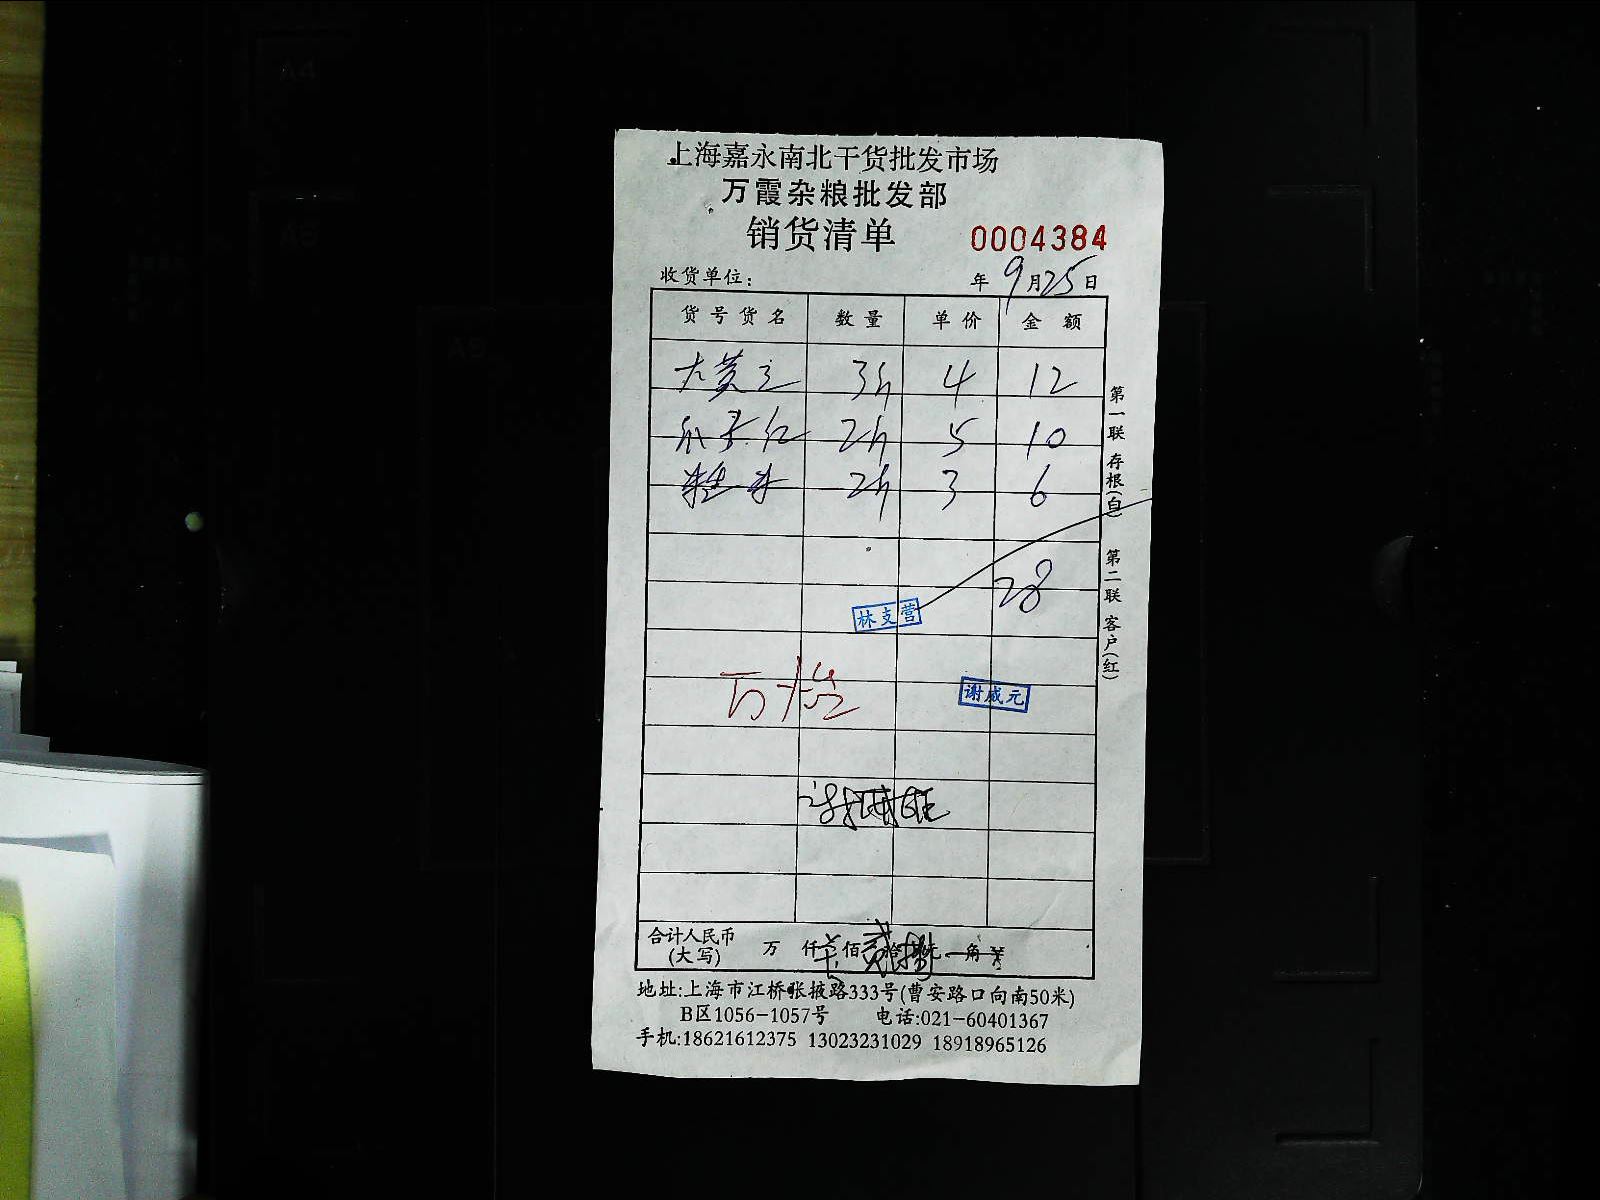 上海嘉永南北干货批发市场
万霞杂粮批发部
销货清单 0004384
收货单位: 年 9 月 25 日
货号货名 数量 单价 金额
大黄豆 3斤 4 12
2斤 5 10
糙米 2斤 3 6
28
林支营
谢威元
合计人民币 万 仟 佰 贰拾捌元 角
(大写)
地址:上海市江桥张掖路333号(曹安路口向南50米)
B区1056-1057号 电话:021-60401367
手机:18621612375 13023231029 18918965126
第一联 存根(白) 第二联 客户(红)